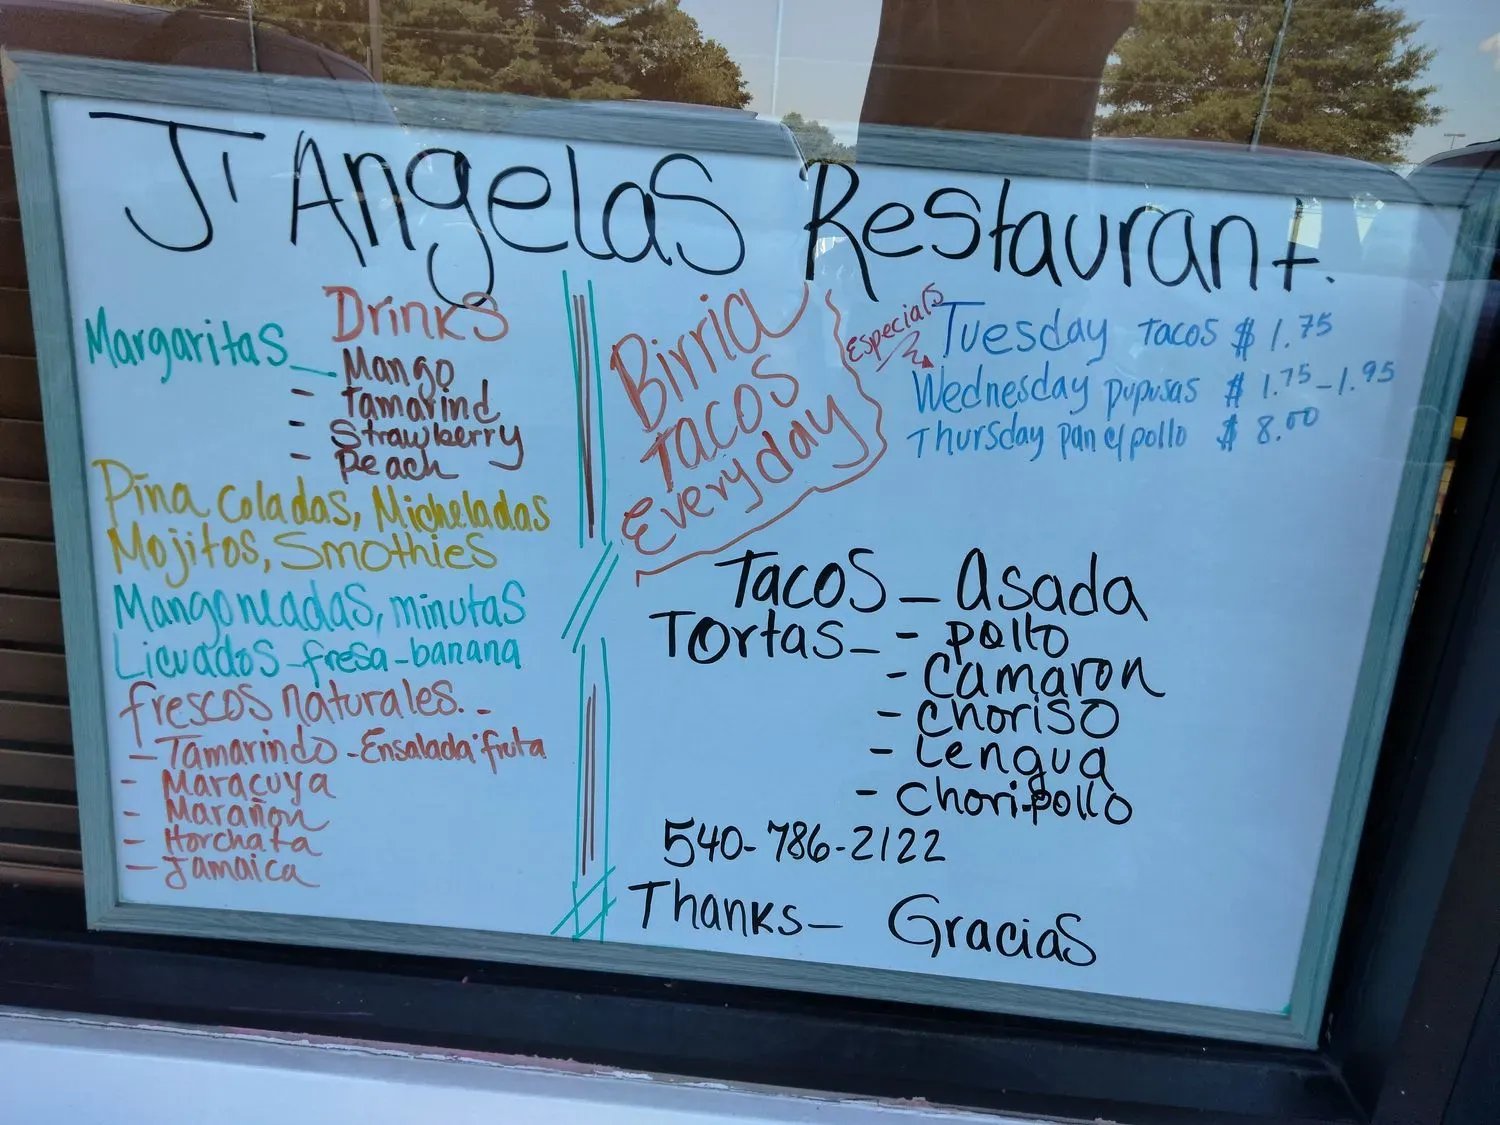 J' Angelas Restaurant.
Drinks
Margaritas - Mango
- Tamarind
- Strawberry
- Peach
Pina coladas, Micheladas
Mojitos, Smothies
Mangoneadas, minutas
Licuados - fresa - banana
frescos naturales. -
- Tamarindo - Ensalada fruta
- Maracuya
- Marañon
- Horchata
- Jamaica
Birria
Tacos
Everyday
Especials
Tuesday Tacos $ 1.75
Wednesday pupusas $ 1.75 - 1.95
Thursday pan c/ pollo $ 8.00
Tacos - Asada
Tortas - - pollo
- Camaron
- Choriso
- Lengua
- Chori-pollo
540-786-2122
Thanks - Gracias